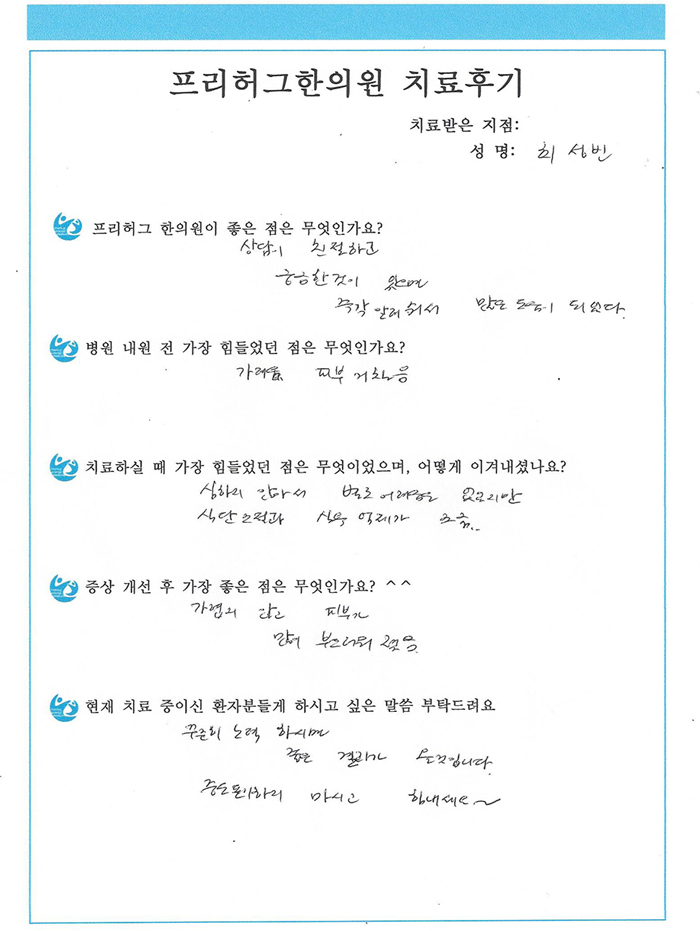 프리허그한의원 치료후기
치료받은 지점:
성 명: 최 성빈
프리허그 한의원이 좋은 점은 무엇인가요?
상담이 친절하고
궁금한것이 있으면
즉각 알려 줘서 많은 도움이 되었다.
병원 내원 전 가장 힘들었던 점은 무엇인가요?
가려움 피부 거칠음
치료하실 때 가장 힘들었던 점은 무엇이었으며, 어떻게 이겨내셨나요?
심하지 않아서 별로 어려움은 없었지만
식단조절과 식욕 억제가 조금..
증상 개선 후 가장 좋은 점은 무엇인가요? ^^
가렵지 않고 피부가
많이 부드러워 졌음
현재 치료 중이신 환자분들게 하시고 싶은 말씀 부탁드려요
꾸준히 노력 하시면
좋은 결과가 올것입니다.
중도포기하지 마시고 힘내세요~